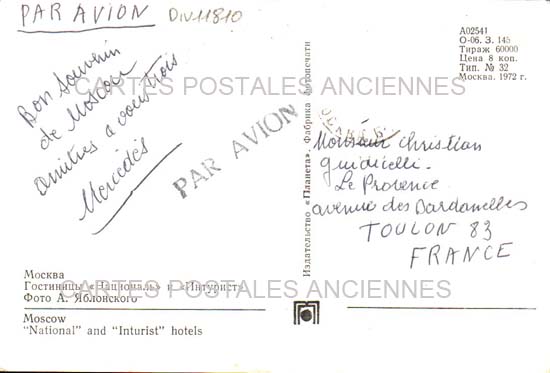 PAR AVION
DIV11810
Bon Souvenir
de Moscou
Amitiés a vous trois
Mercédès
PAR AVION
А02541
О-06. З. 145
Тираж 60000
Цена 8 коп.
Тип. № 32
Москва. 1972 г.
CARTES POSTALES ANCIENNES
Издательство «Планета». Фабрика фотопечати
Monsieur Christian
Guidicelli.
Le Provence
avenue des Dardanelles
TOULON 83
FRANCE
Москва
Гостиницы «Националь» и «Интурист»
Фото А. Яблонского
CARTES POSTALES ANCIENNES
Moscow
"National" and "Inturist" hotels